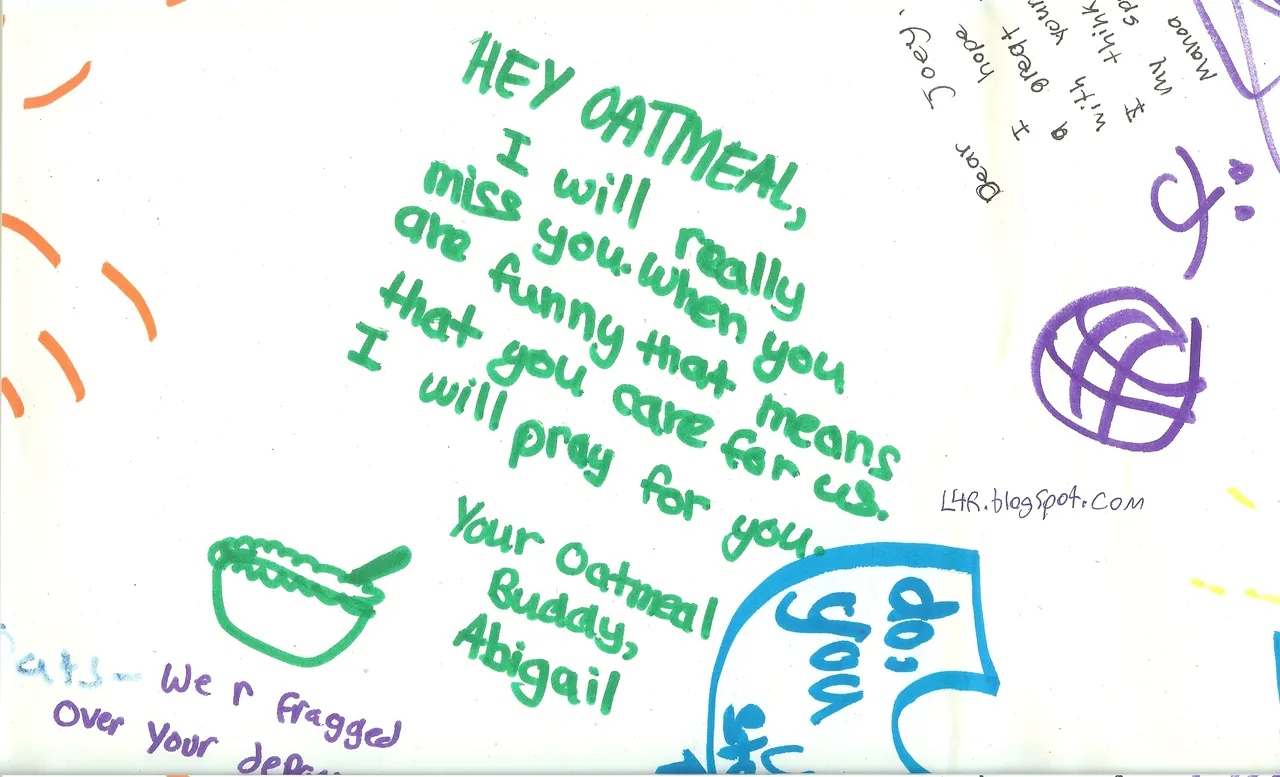 HEY OATMEAL,
I will really
miss you. When you
are funny that means
that you care for us.
I will pray for you.
Your Oatmeal
Buddy,
Abigail
Dear Joey,
I hope
a great
with your
I think
my sp
Manoa
L4R.blogspot.com
do,
you
We r fragged
Over Your